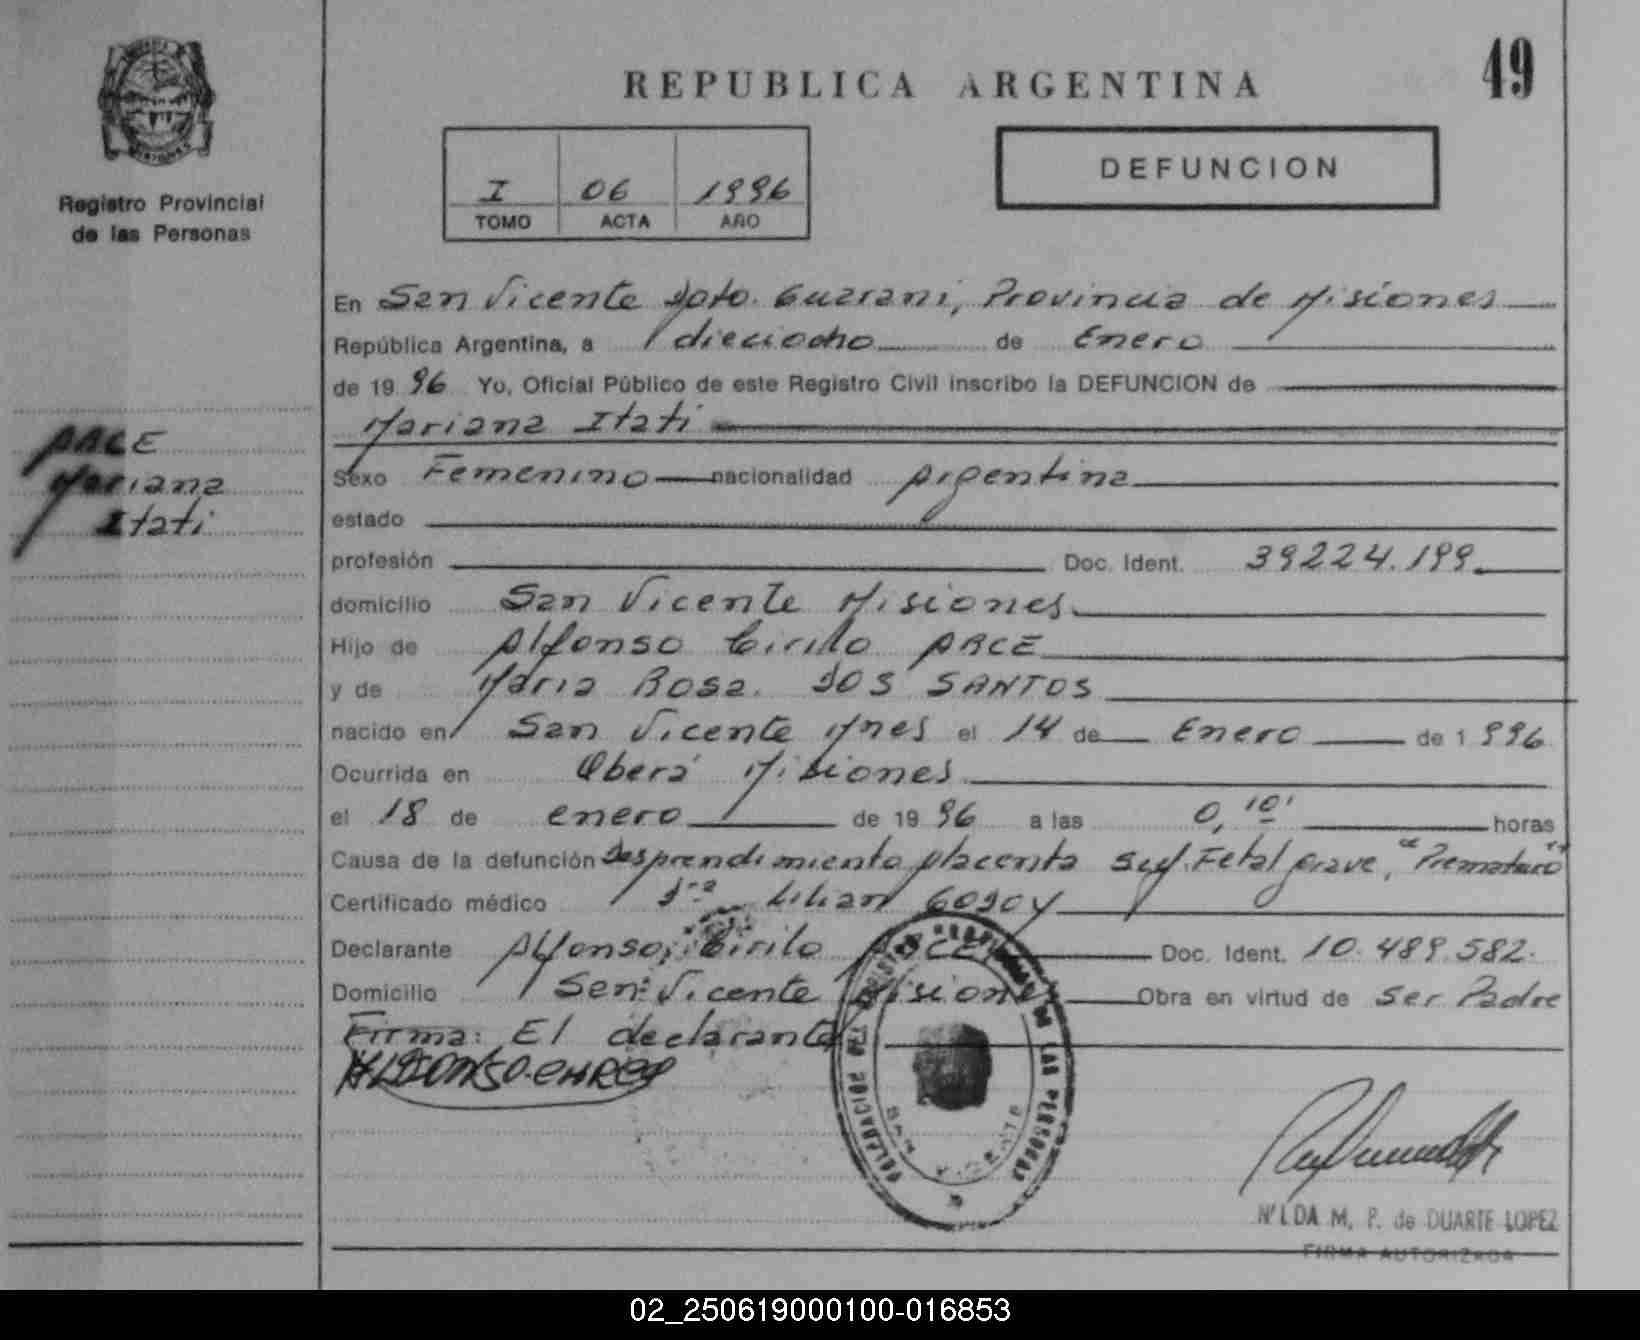 49
REPUBLICA ARGENTINA
DEFUNCION
I 06 1996
TOMO ACTA AÑO
Registro Provincial
de las Personas
MISIONES
ARCE
Mariana
Itati
En San Vicente Dpto. Guarani, Provincia de Misiones
República Argentina, a dieciocho de Enero
de 1996 Yo, Oficial Público de este Registro Civil inscribo la DEFUNCION de
Mariana Itati
Sexo Femenino nacionalidad Argentina
estado
profesión Doc. Ident. 39224.199.
domicilio San Vicente Misiones
Hijo de Alfonso Cirilo ARCE
y de Maria Rosa DOS SANTOS
nacido en San Vicente Mnes el 14 de Enero de 1996
Ocurrida en Oberá Misiones
el 18 de enero de 1996 a las 0,10' horas
Causa de la defunción Desprendimiento placenta Suf. Fetal grave, "Prematuro"
Certificado médico Dra Lilian Godoy
Declarante Alfonso Cirilo ARCE Doc. Ident. 10.489.582.
Domicilio San Vicente Misiones Obra en virtud de Ser Padre
Firma: El declarante
REGISTRO PROVINCIAL DE LAS PERSONAS
SAN VICENTE
NILDA M. P. de DUARTE LOPEZ
FIRMA AUTORIZADA
02_250619000100-016853